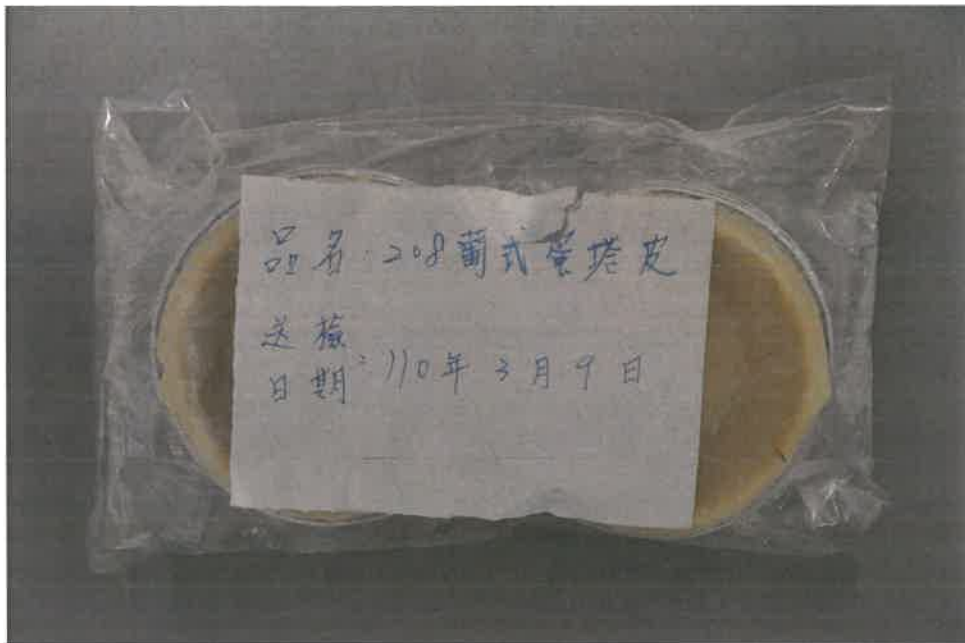 品名:208葡式蛋塔皮
送檢
日期:110年3月9日